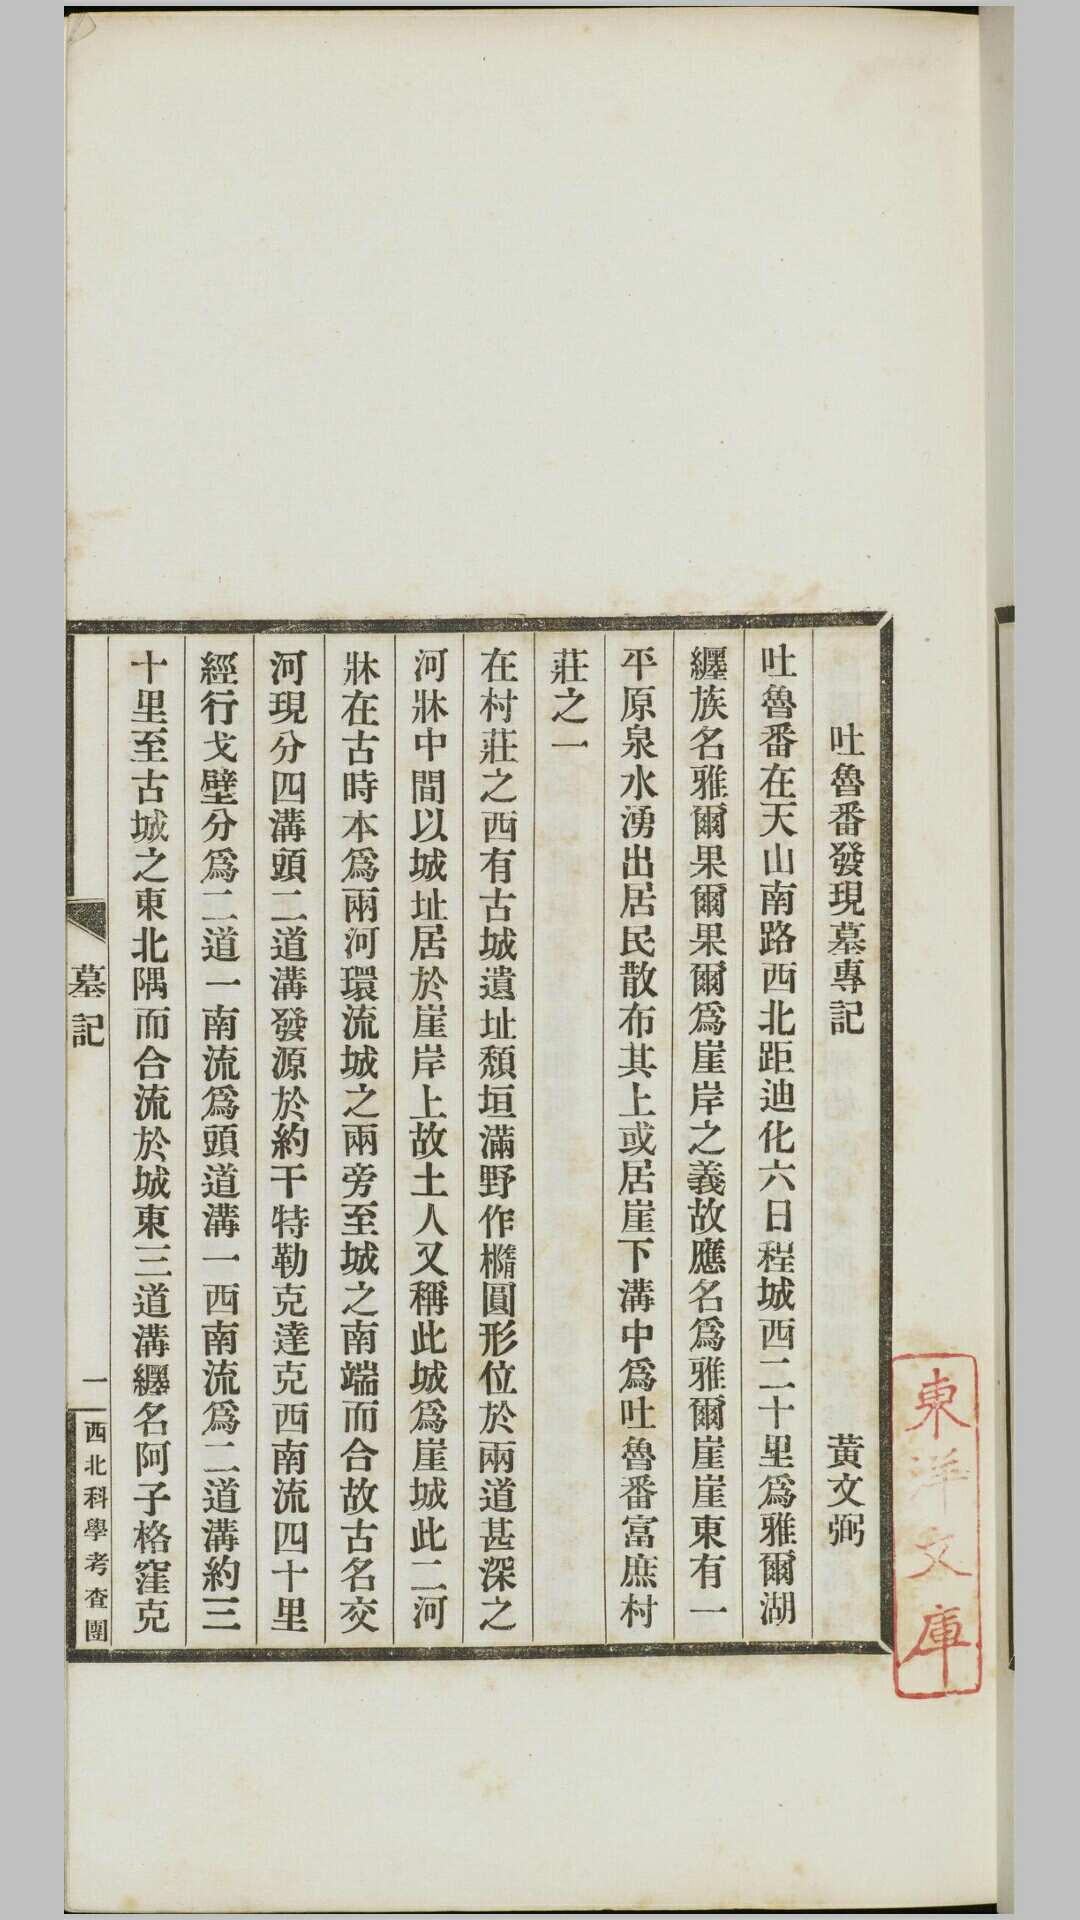 吐魯番發現墓專記
黃文弼
吐魯番在天山南路西北距迪化六日程城西二十里爲雅爾湖
纒族名雅爾果爾果爾爲崖岸之義故應名爲雅爾崖崖東有一
平原泉水湧出居民散布其上或居崖下溝中爲吐魯番富庶村
莊之一
在村莊之西有古城遺址頹垣滿野作橢圓形位於兩道甚深之
河牀中間以城址居於崖岸上故土人又稱此城爲崖城此二河
牀在古時本爲兩河環流城之兩旁至城之南端而合故古名交
河現分四溝頭二道溝發源於約干特勒克達克西南流四十里
經行戈壁分爲二道一南流爲頭道溝一西南流爲二道溝約三
十里至古城之東北隅而合流於城東三道溝纒名阿子格窪克
墓記
一
西北科學考查團
東洋文庫